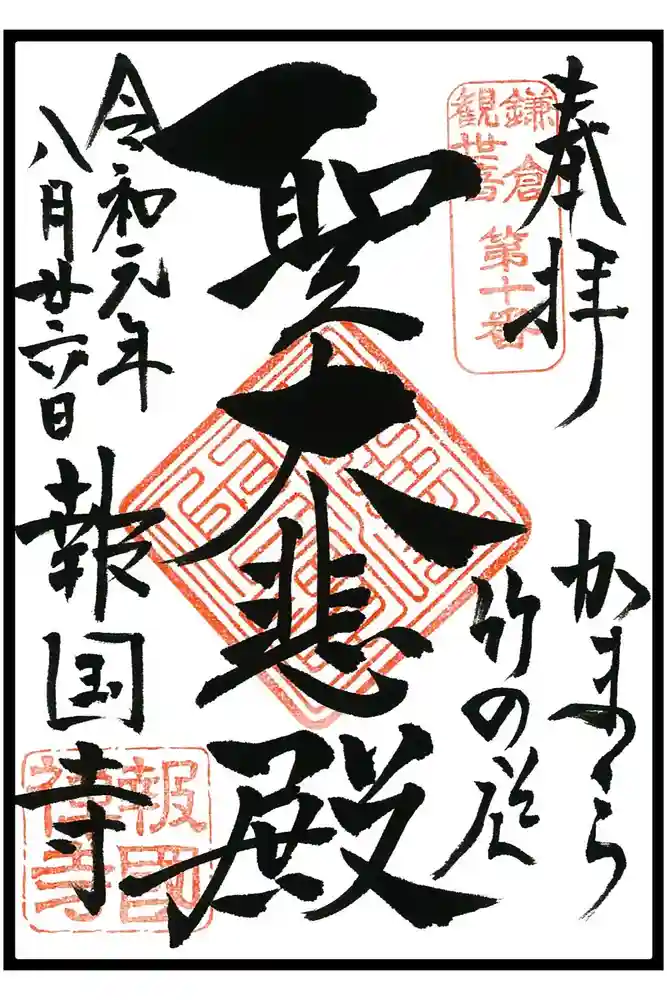 奉拝
鎌倉
観世音
第十番
かまくら
竹の庭
聖大悲殿
令和元年
八月廿六日
報国寺
報國
禅寺